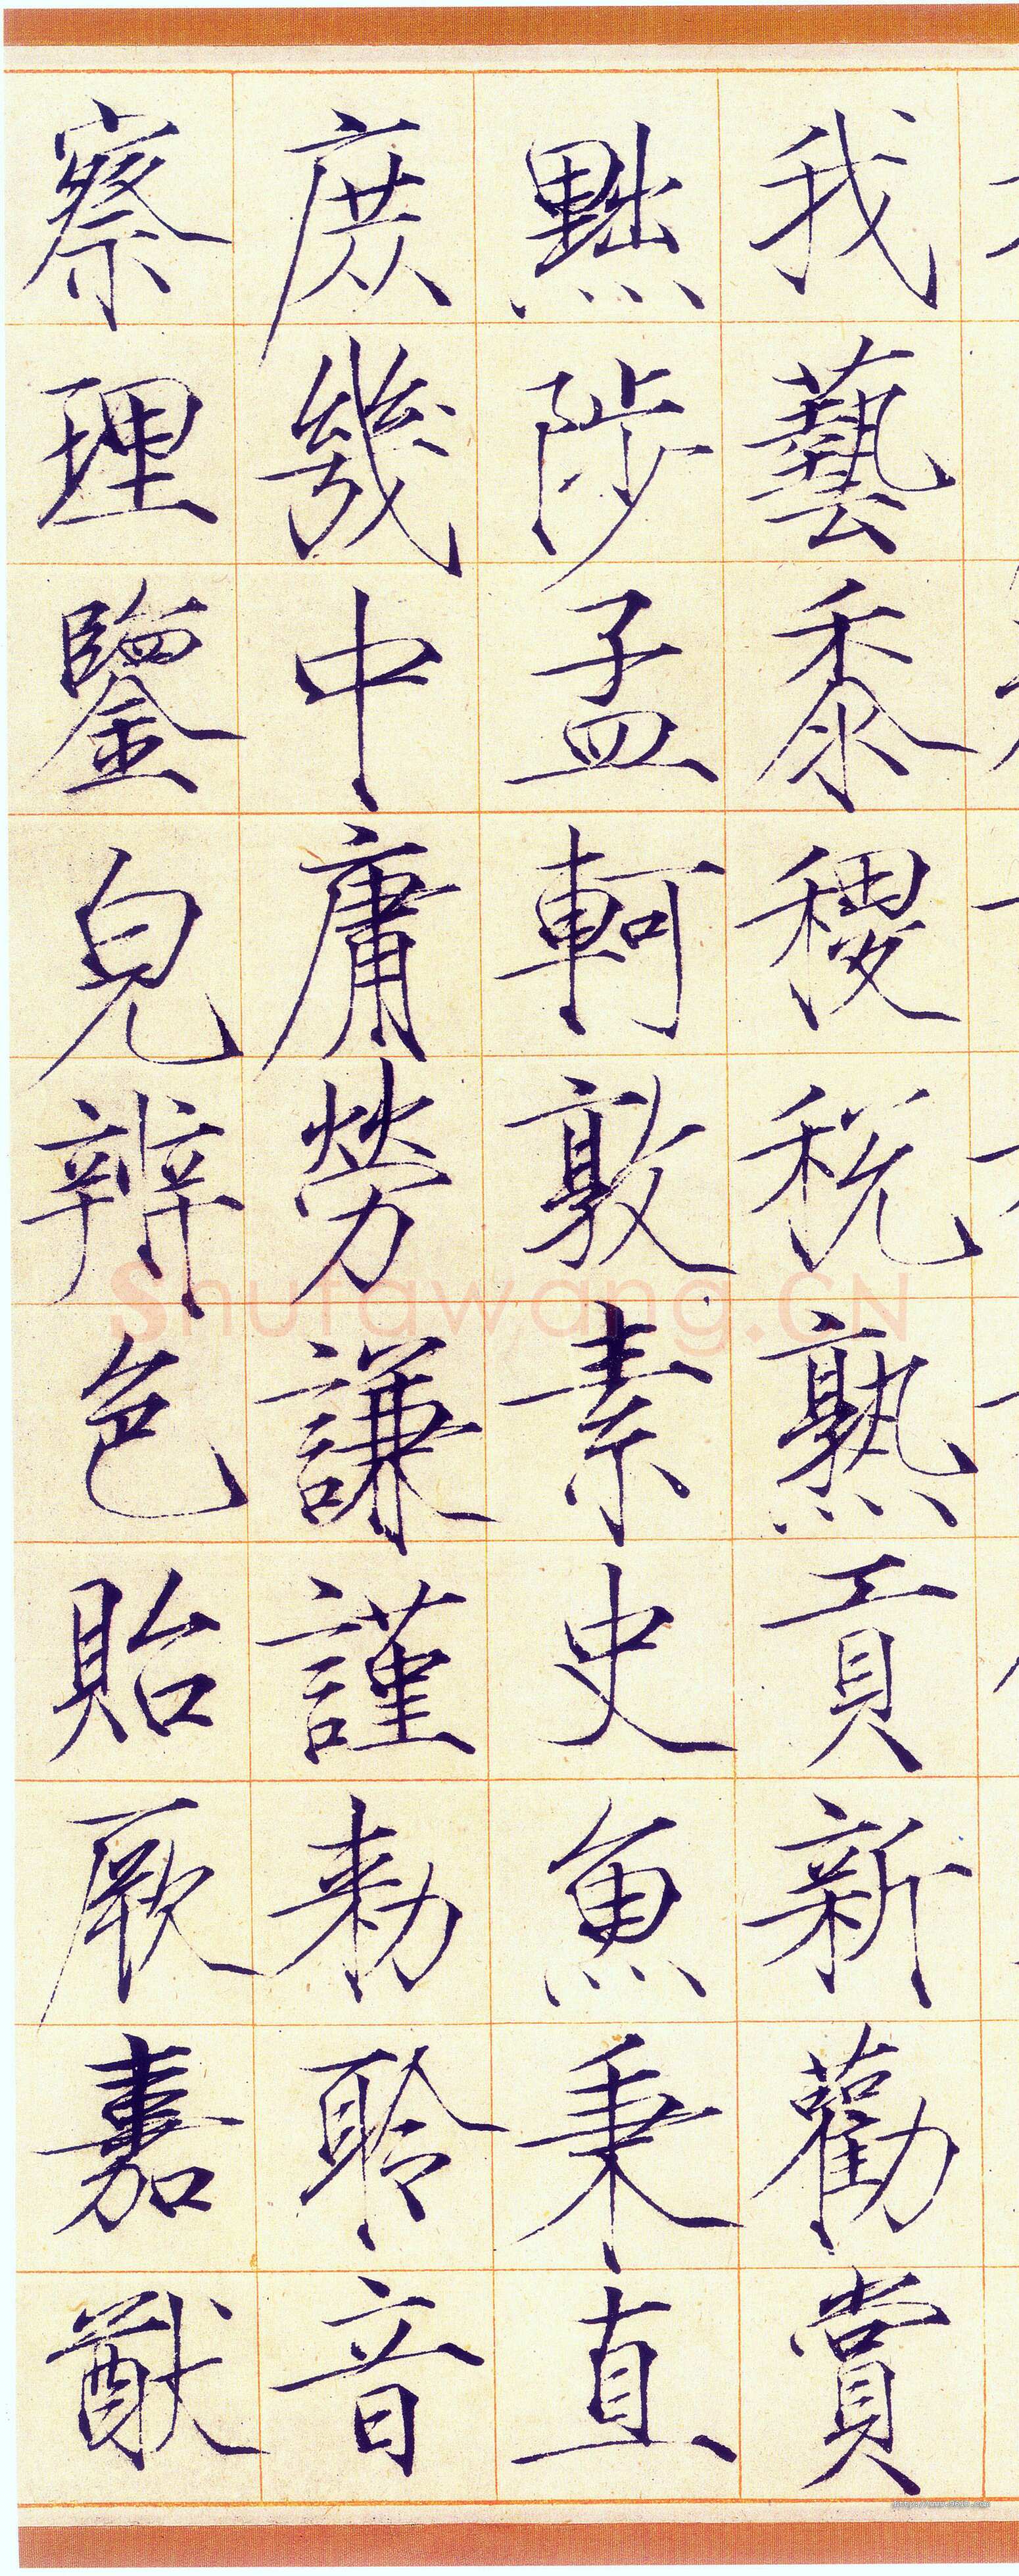 我藝黍稷稅熟貢新勸賞
黜陟孟軻敦素史魚秉直
庶幾中庸勞謙謹勅聆音
察理鑒皃辨色貽厥嘉猷
Shufawang.CN